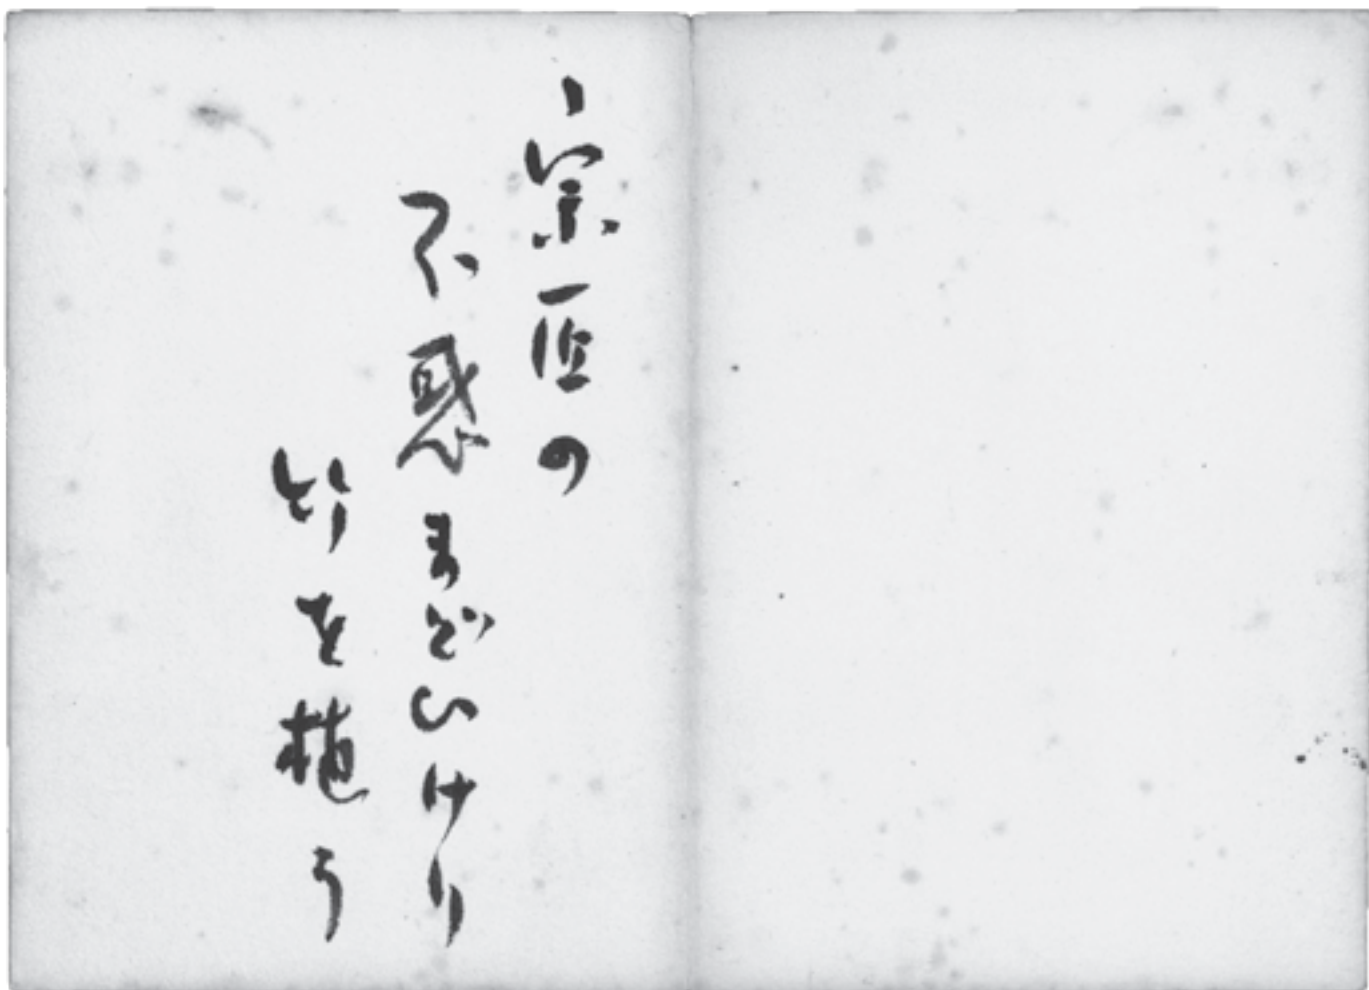 宗匠の
不惑まどひけり
竹を植う